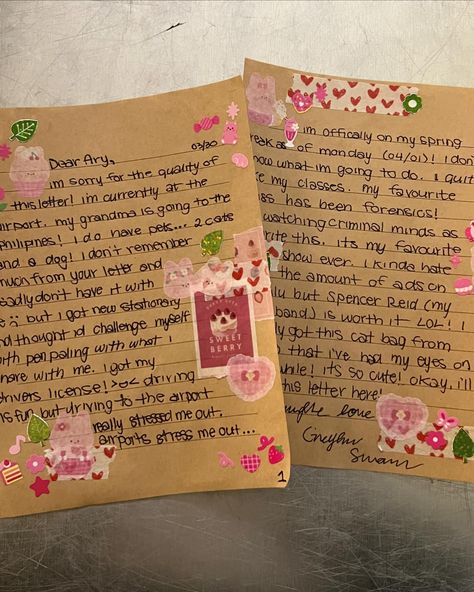 03/30
Dear Ary,
im sorry for the quality of
this letter! im currently at the
airport. my grandma is going to the
Philipines! I do have pets... 2 cats
and a dog! I don't remember
much from your letter and
sadly don't have it with
me :( but i got new stationary
and thought id challenge myself
with pen paling with what i
have with me. I got my
drivers license! >o< driving
is fun but driving to the airport
really stressed me out.
airports stress me out...
SWEET
BERRY
1
im offically on my spring
break as of monday (04/01)! I don't
know what im going to do. i quite
like my classes. my favourite
class has been forensics!
watching criminal minds as
write this. its my favourite
show ever. i kinda hate
the amount of ads on
but spencer Reid (my
husband) is worth it LOL! i
got this cat bag from
that i've had my eyes on
while! its so cute! okay, i'll
this letter here!
love
Swam